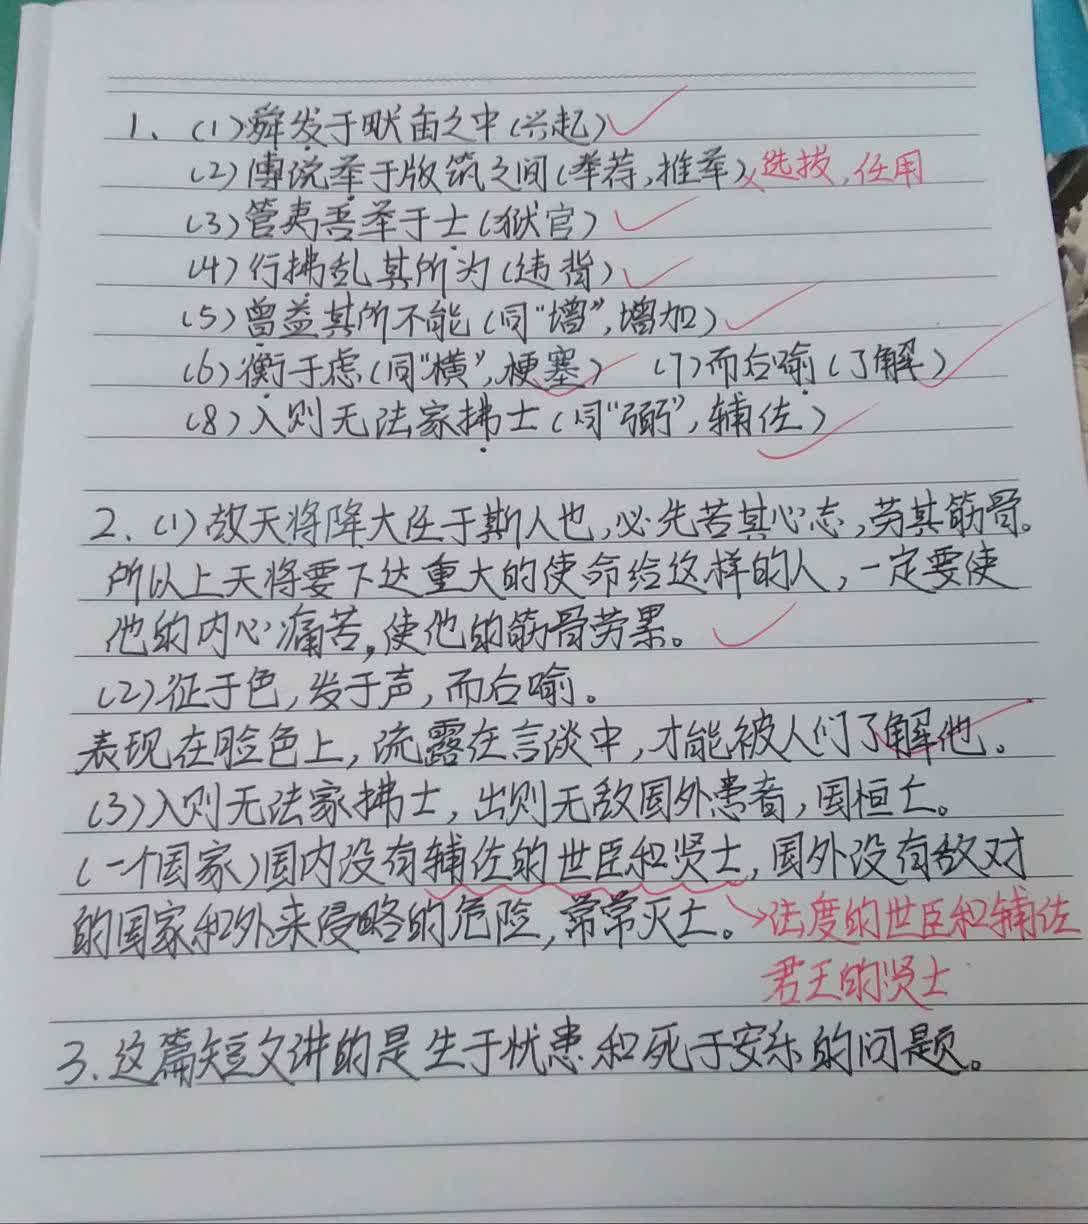 1、(1)舜发于畎亩之中(兴起)
(2)傅说举于版筑之间(举荐,推举)选拔,任用
(3)管夷吾举于士(狱官)
(4)行拂乱其所为(违背)
(5)曾益其所不能(同"增",增加)
(6)衡于虑(同"横",梗塞) (7)而后喻(了解)
(8)入则无法家拂士(同"弼",辅佐)
2、(1)故天将降大任于斯人也,必先苦其心志,劳其筋骨。
所以上天将要下达重大的使命给这样的人,一定要使
他的内心痛苦,使他的筋骨劳累。
(2)征于色,发于声,而后喻。
表现在脸色上,流露在言谈中,才能被人们了解他。
(3)入则无法家拂士,出则无敌国外患者,国恒亡。
(一个国家)国内没有辅佐的世臣和贤士,国外没有敌对
的国家和外来侵略的危险,常常灭亡。法度的世臣和辅佐
君王的贤士
3、这篇短文讲的是生于忧患和死于安乐的问题。